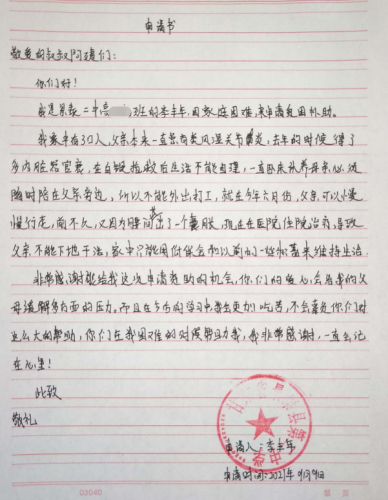 申请书
敬爱的叔叔阿姨们：
你们好！
我是景泰二中高 班的李主年，因家庭困难来申请贫困补助。
我家中有3口人，父亲本来一直患有类风湿关节炎，去年的时候得了
多内脏器官衰，在白银抢救后生活不能自理，一直卧床休养母亲必须
随时陪在父亲旁边，所以不能外出打工，就在今年六月份，父亲可以慢
慢行走，前不久，又因为腰间出了个囊肿，现还在医院住院治疗，导致
父亲不能下地干活，家中只能用低保金和以前的一些积蓄来维持生活.
非常感谢能给我这次申请资助的机会，你们的爱心，会为我的父
母缓解多方面的压力，而且在今后的学习中我会更加吃苦，不会辜负你们对
这么大的帮助，你们在我困难的时候帮助我，我非常感谢，一直会记
在心里！
此致
敬礼
申请人：李主年
申请时间：2021年9月9日
03040